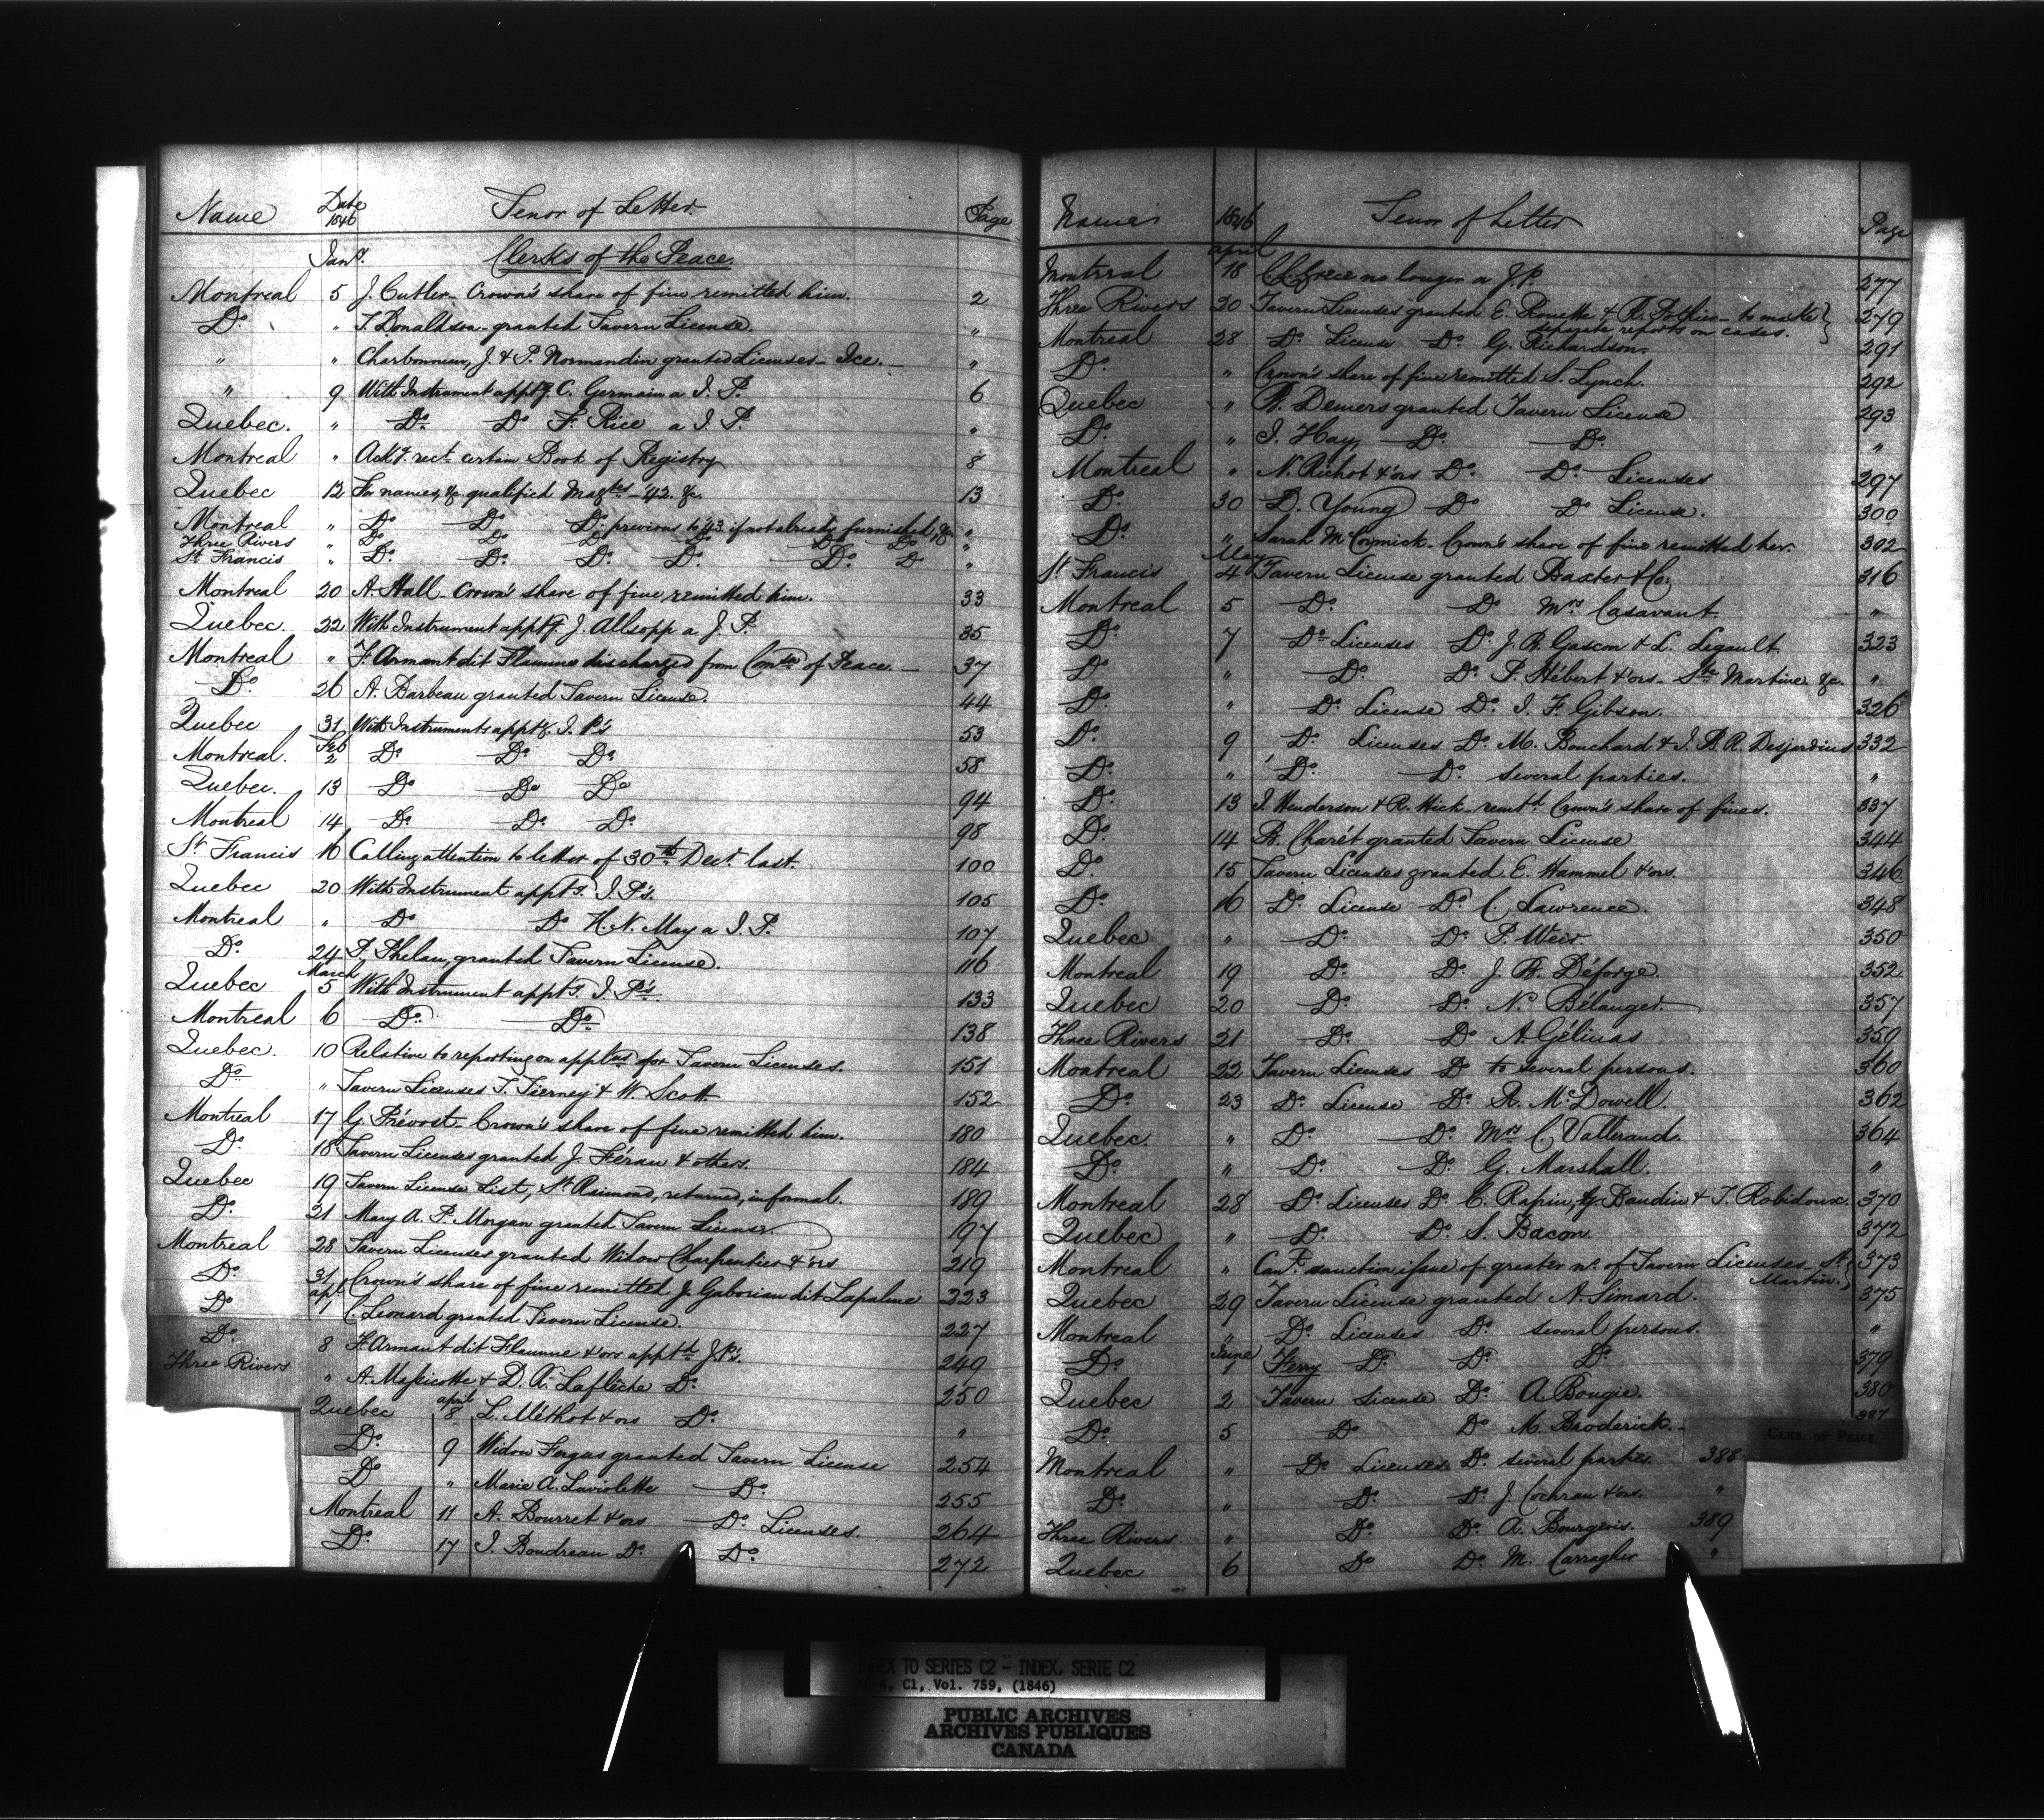 Name Date 1846 Tenor of Letter. Page
Jany. Clerks of the Peace.
Montreal 5 J. Cutler - Crown's share of fine remitted him. 2
Do. " T. Donaldson - granted Tavern License. "
" " Charbonneau, J. & P. Normandin granted Licenses - Ice. "
" 9 With Instrument apptg. C. Germain a J. P. 6
Quebec. " Do. Do F. Rice a J. P. "
Montreal " Ackg. rect. certain Book of Registry 8
Quebec 12 For names, &c qualified Magtes - '42 &c. 13
Montreal " Do Do Do. previous to '43 if not already furnished, &c "
Three Rivers " Do Do Do Do Do Do "
St Francis " Do. Do. Do. Do. Do. Do "
Montreal 20 A. Hall - Crown's share of fine remitted him. 33
Quebec. 22 With Instrument apptg. J. Allsopp a J. P. 35
Montreal " F. Armant dit Flamme discharged from of Peace. 37
Do. 26 A. Barbeau granted Tavern License. 44
Quebec 31 With Instruments apptg. J. P's 53
Montreal. Feb 2 Do Do. Do. 58
Quebec. 13 Do Do Do 94
Montreal 14 Do. Do. Do. 98
St Francis 16 Calling attention to letter of 30th Decr. last. 100
Quebec 20 With Instrument apptg. J. P's. 105
Montreal " Do Do H. N. May a J. P. 107
Do. 24 P. Phelan, granted Tavern License. 116
Quebec March 5 With Instrument apptg. J. P's. 133
Montreal 6 Do. Do. 138
Quebec. 10 Relative to reporting on applns for Tavern Licenses. 151
Do " Tavern Licenses T. Tierney & W. Scott 152
Montreal 17 G. Prévost - Crown's share of fine remitted him. 180
Do. 18 Tavern Licenses granted J. Féran & others. 184
Quebec 19 Tavern License List, St Raimond, returned, informal. 189
Do. 21 Mary A. P. Morgan granted Tavern License. 197
Montreal 28 Tavern Licenses granted Widow Charpentier & ors 219
Do. 31 Crown's share of fine remitted J. Gaboriau dit Lapalme 223
Do apl 1 C. Leonard granted Tavern License. 227
Do. 8 F. Armant dit Flamme & ors apptd. J. P's. 249
Three Rivers " A. Massicotte & D. R. Laflèche Do. 250
Quebec april 8 L. Méthot & ors Do. "
Do. 9 Widow Fergus granted Tavern License 254
Do " Marie A. Laviolette Do. 255
Montreal 11 A. Bourret & ors Do. Licenses. 264
Do. 17 J. Boudreau Do. Do. 272
Name 1846 Tenor of Letter Page
Montreal april 18 Grece no longer a J. P. 277
Three Rivers 20 Tavern Licenses granted E. Rouette & R. Pothier - to make 279
separate reports on cases.
Montreal 28 Do. License Do. G. Richardson. 291
Do. " Crown's share of fine remitted S. Lynch. 292
Quebec " B. Demers granted Tavern License 293
Do. " J. Hay Do. Do. "
Montreal " N. Richot & ors Do. Do. Licenses 297
Do. 30 D. Young Do Do License. 300
Do. " Sarah McCormick - Crown's share of fine remitted her. 302
St Francis May 4 Tavern License granted Baxter & Co. 316
Montreal 5 Do. Do Mrs Casavant. "
Do. 7 Do Licenses Do. J. B. Gascon & L. Legault 323
Do " Do. Do. P. Hébert & ors - Ste Martine &c. "
Do. " Do. License Do. J. F. Gibson. 326
Do. 9 Do. Licenses Do. M. Bouchard & J. B. R. Desjardins 332
Do. " Do. Do. several parties. "
Do. 13 J. Henderson & R. Hick - remitd Crown's share of fines. 337
Do. 14 B. Charét granted Tavern License 344
Do. 15 Tavern Licenses granted E. Hammel & ors. 346
Do. 16 Do. License Do. C. Lawrence. 348
Quebec " Do. Do. P. Weir. 350
Montreal 19 Do. Do. J. B. Déforge. 352
Quebec 20 Do. Do. N. Bélanger. 357
Three Rivers 21 Do. Do A. Gélinas 359
Montreal 22 Tavern Licenses Do to several persons. 360
Do. 23 Do. License Do. R. McDowell. 362
Quebec. " Do. Do. Mrs C. Vallerand. 364
Do. " Do. Do. G. Marshall. "
Montreal 28 Do. Licenses Do. C. Rapin, G. Baudin & T. Robidoux. 370
Quebec " Do. Do. S. Bacon. 372
Montreal " Can't sanction issue of greater no. of Tavern Licenses - St 373
Martin.
Quebec 29 Tavern License granted A. Simard. 375
Montreal " Do. Licenses Do. several persons. "
Do. June 1 Ferry Do. Do. Do. 379
Quebec 2 Tavern License Do. A. Bougie. 380
Do. 5 Do Do M. Broderick. 387
Montreal " Do Licenses Do. several parties. 388
Do. " Do. Do. J. Cochran & ors. "
Three Rivers " Do. Do. A. Bourgeois. 389
Quebec 6 Do Do. M. Carragher "
CLKS. OF PEACE.
INDEX TO SERIES C2 - INDEX, SERIE C2
4, C1, Vol. 759, (1846)
PUBLIC ARCHIVES
ARCHIVES PUBLIQUES
CANADA